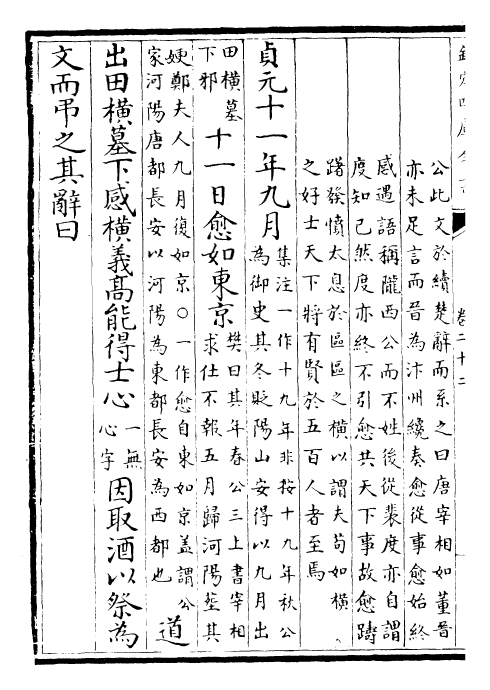 卷二十二
公此文於續楚辭而系之曰唐宰相如董晉
亦未足言而晉為汴州纔奏愈從事愈始終
感遇語稱隴西公而不姓後從裴度亦自謂
度知己然度亦終不引愈共天下事故愈躊
躇發憤太息於區區之橫以謂夫苟如橫
之好士天下將有賢於五百人者至焉
貞元十一年九月
集注一作十九年非按十九年秋公
為御史其冬貶陽山安得以九月出
田橫墓
下邪
十一日愈如東京
樊曰其年春公三上書宰相
求仕不報五月歸河陽塟其
嫂鄭夫人九月復如京○一作愈自東如京盖謂公
家河陽唐都長安以河陽為東都長安為西都也
道
出田橫墓下感橫義髙能得士心
一無
心字
因取酒以祭為
文而弔之其辭曰